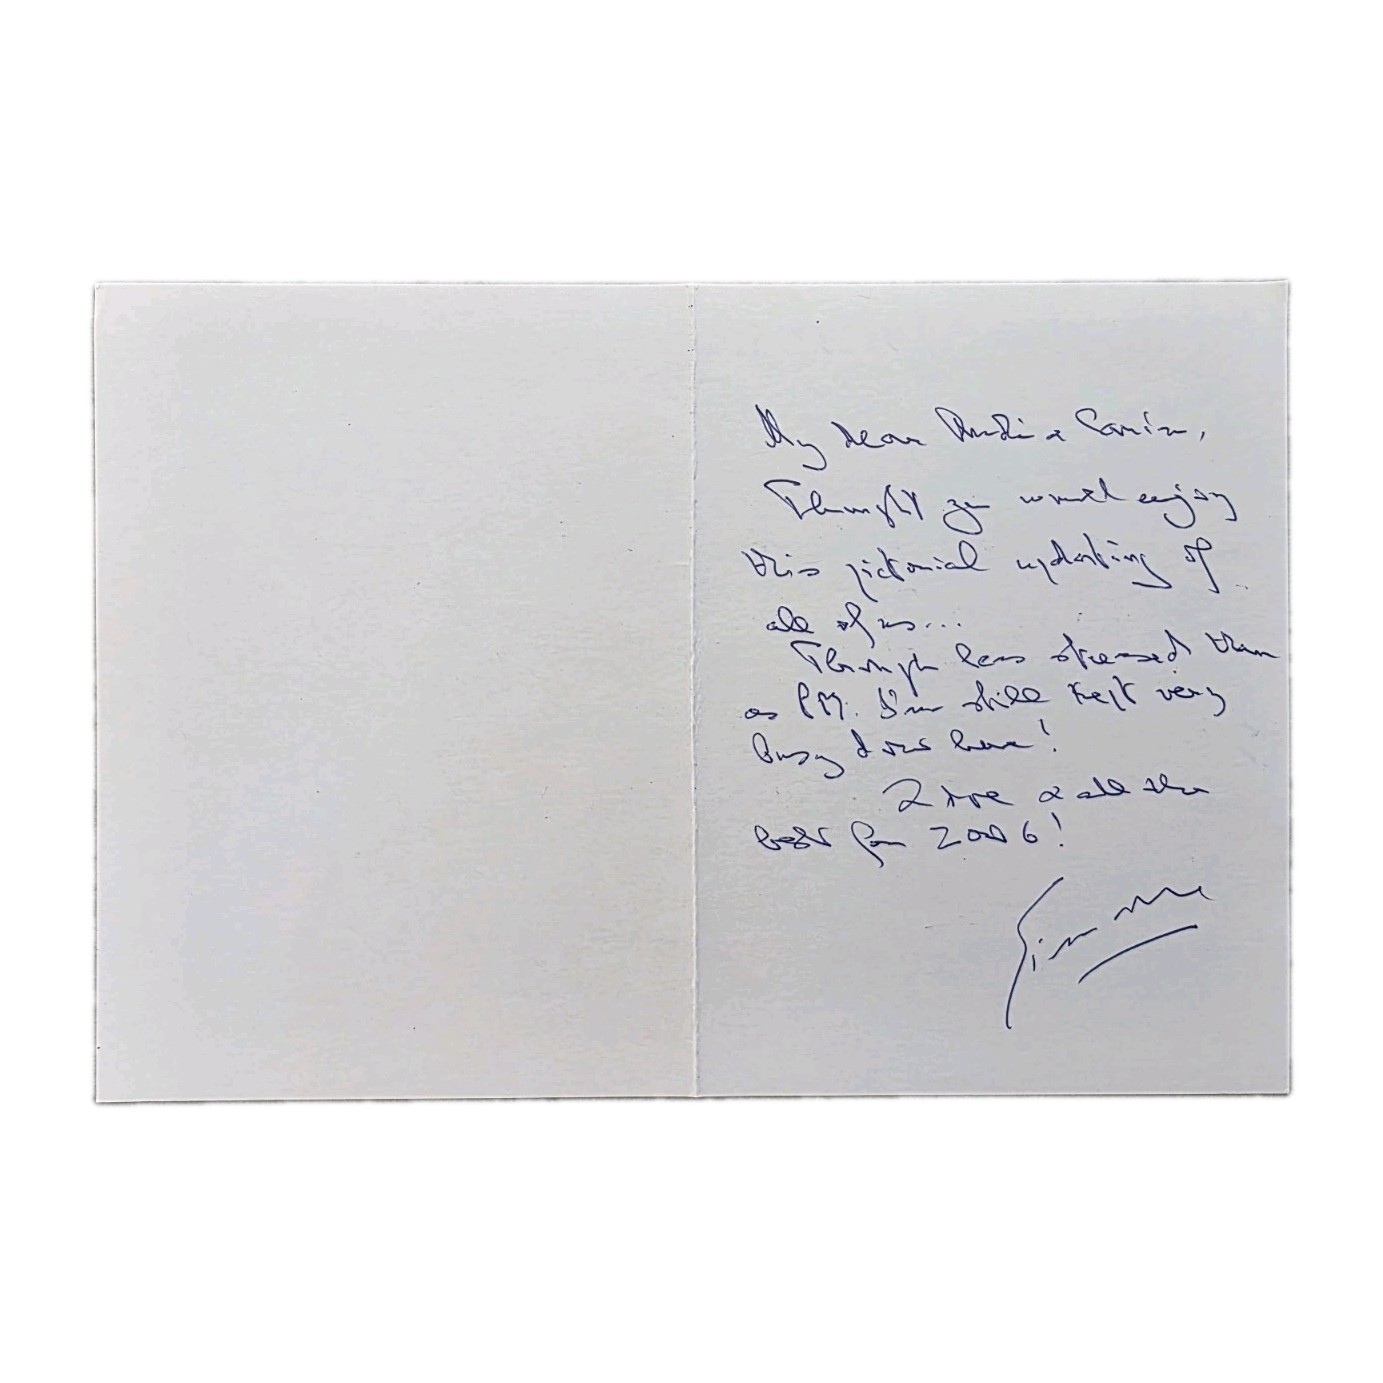 My dear & Carrin,
Thought you would enjoy
this pictorial updating of
all of us...
Though less stressed than
as PM. I'm still kept very
busy down here!
Love & all the
best for 2006!